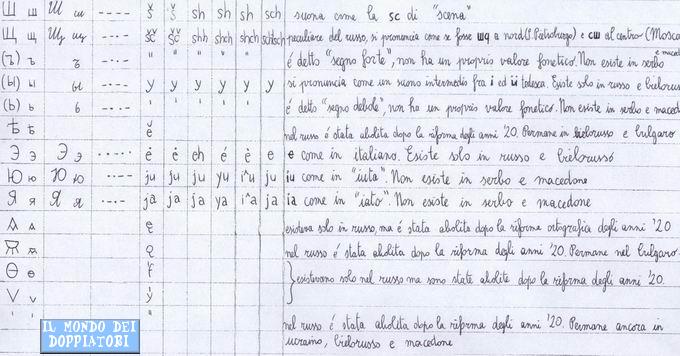 Ш ш Ш ш ---- š š sh sh sh sh suona come la sc di "scena"
Щ щ Щ щ --.- šč šč shh shh shch schtsch peculiare del russo, si pronuncia come se fosse шч a nord (S. Pietroburgo) e сш al centro (Mosca
(Ъ) ъ ъ -..- " " " " " " é detto "segno forte", non ha un proprio valore fonetico. Non esiste in serbo e maced
(Ы) ы ы -.-- y y y y y y si pronuncia come un suono intermedio fra i ed ü tedesca. Esiste solo in russo e bielorus
(Ь) ь ь -..- ' ' ' ' ' ' é detto "segno debole", non ha un proprio valore fonetico. Non esiste in serbo e maced
Ѣ ѣ ě nel russo é stata abolita dopo la riforma degli anni '20. Permane in bielorusso e bulgaro
Э э Э э ..-.. ė ė eh é è e e come in italiano. Esiste solo in russo e bielorussó
Ю ю Ю ю ..-- ju ju ju yu i^u ju iu come in "iuta". Non esiste in serbo e macedone
Я я Я я .-.- ja ja ja ya i^a ja ia come in "iato". Non esiste in serbo e macedone
Ѧ ѧ ę esisteva solo in russo, ma é stata abolita dopo la riforma ortografia degli anni '20
Ѫ ѫ ǫ nel russo é stata abolita dopo la riforma degli anni '20. Permane nel bulgaro.
Ѳ ѳ f } esistevano solo nel russo ma sono state abolite dopo la riforma degli anni '20.
V v ý
' ' " nel russo é stata abolita dopo la riforma degli anni '20. Permane ancora in
ucraino, bielorusso e macedone
IL MONDO DEI
DOPPIATORI